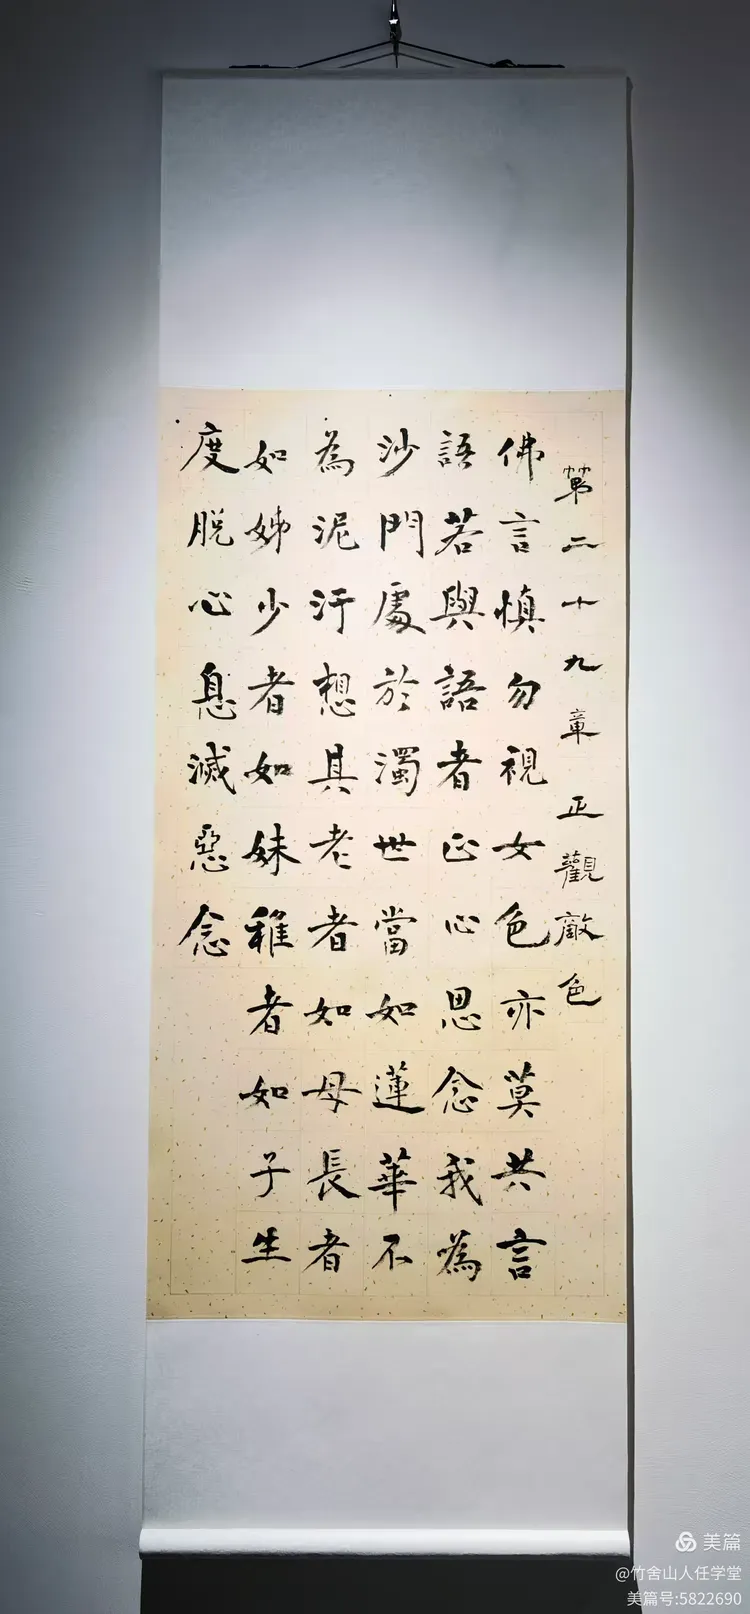 第二十九章正觀敵色
佛言慎勿視女色亦莫共言
語若與語者正心思念我為
沙門處於濁世當如蓮華不
為泥汙想其老者如母長者
如姊少者如妹稚者如子生
度脫心息滅惡念
美篇
@竹舍山人任学堂
美篇号:5822690